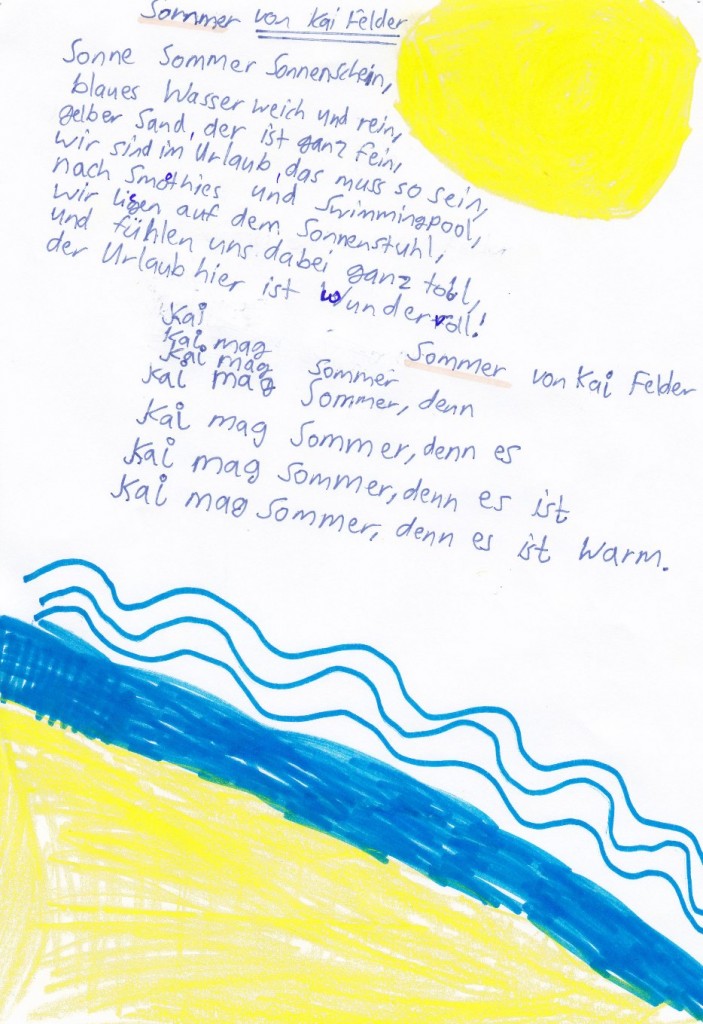 Sommer von Kai Felder
Sonne Sommer Sonnenschein,
blaues Wasser weich und rein,
gelber Sand, der ist ganz fein,
wir sind im Urlaub, das muss so sein,
nach Smothies und Swimmingpool,
wir ligen auf dem Sonnenstuhl,
und fühlen uns dabei ganz toll,
der Urlaub hier ist wundervoll!
Sommer von Kai Felder
Kai
Kai mag
Kai mag Sommer
Kai mag Sommer, denn
Kai mag Sommer, denn es
Kai mag Sommer, denn es ist
Kai mag Sommer, denn es ist warm.